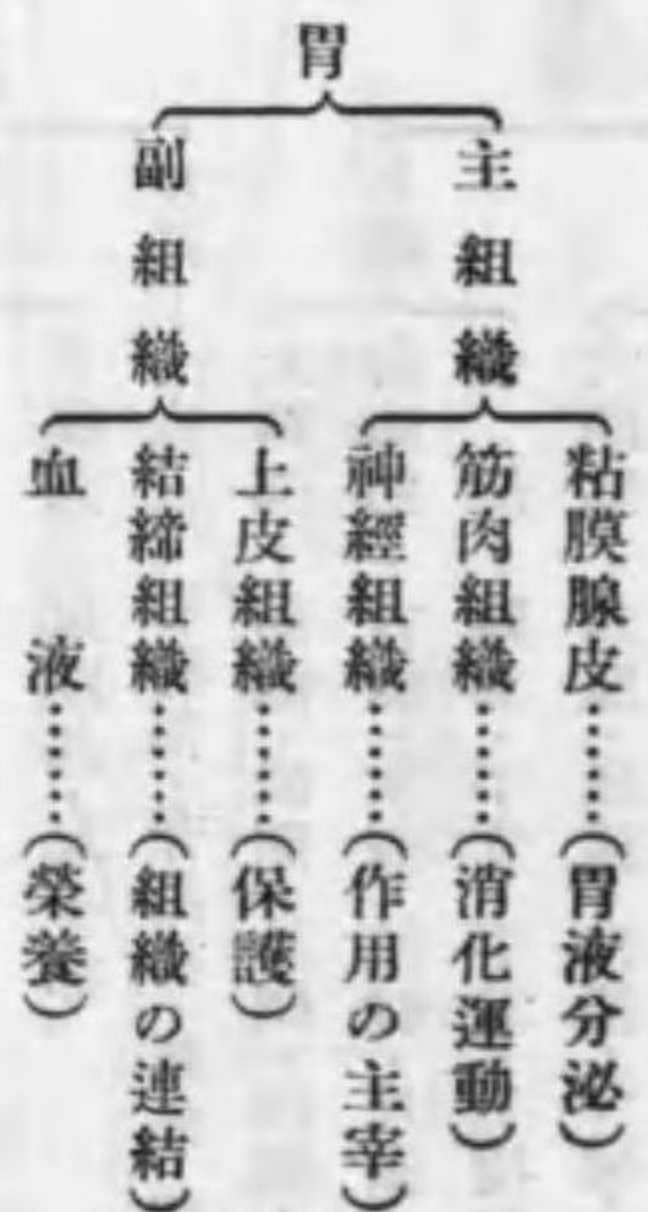 胃
主組織
粘膜腺皮……(胃液分泌)
筋肉組織……(消化運動)
神經組織……(作用の主宰)
副組織
上皮組織……(保護)
結締組織……(組織の連結)
血液……(榮養)